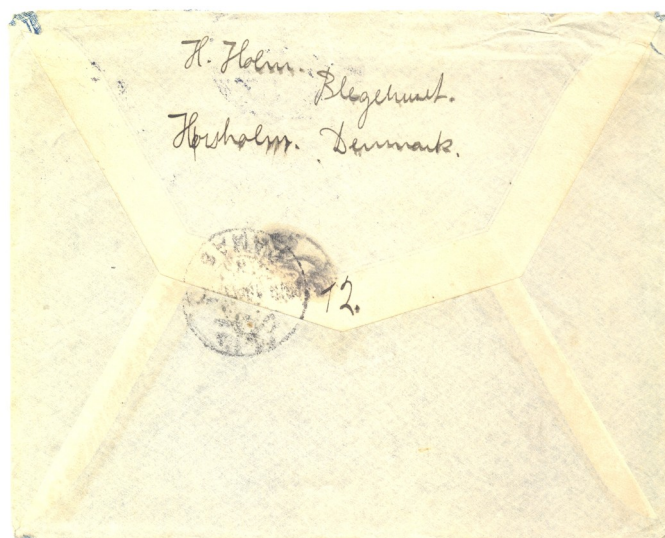 H. Holm.
Blegehuset.
Hørsholm. Denmark.
12.